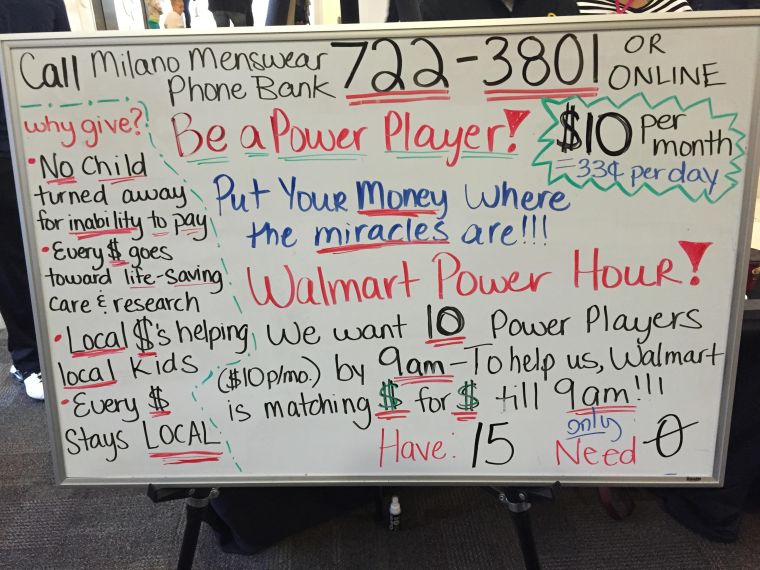 Call Milano Menswear
Phone Bank 722-3801 OR
ONLINE
why give?
• No Child
turned away
for inability to pay
• Every $ goes
toward life-saving
care & research
• Local $'s helping
local Kids
• Every $
Stays LOCAL
Be a Power Player!
$10 per
month
=33¢ per day
Put Your Money Where
the miracles are!!!
Walmart Power Hour!
We want 10 Power Players
($10 p/mo.) by 9am-To help us, Walmart
is matching $ for $ till 9am!!!
Have: 15
only
Need 0